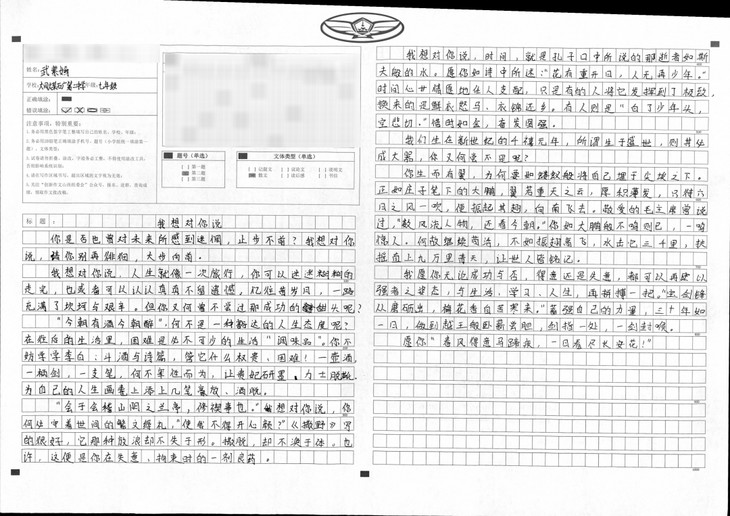 姓名: 武紫涵
年级: 七年级
正确填涂:
错误填涂:
注意事项,特别重要:
题号(单选)
第一题
第二题
第三题
文体类型(单选)
记叙文
说论文
说明文
散文
读后感
书信
标题: 我想对你说
你是否也曾对未来所感到迷惘,止步不前?我想对你
说,请你别再徘徊,大步向前。
我想对你说,人生就像一次旅行,你可以迷迷糊糊的
走完,也或者可以认认真真不留遗憾,几经苦岁月,一路
充满了坎坷与艰辛。但你又何曾不尝过那成功的甜头呢?
“今朝有酒今朝醉”,何不是一种豁达的人生态度呢?
在往后的生活里,困难是必不可少的生活“调味品”。你不
妨学学李白:斗酒与诗篇,管它什么权贵、困难!一壶酒,
一柄剑,一支笔,何不率性而为,让贵妃研墨,力士脱靴,
为自己的人生画卷上添上几笔豪放、洒脱。
“会于会稽山阴之兰亭,修禊事也。”我想对你说,你
何必守着世间的繁文缛礼,“使我不得开心颜?”
的很好,它那种放浪却不失于形。洒脱,却不流于俗。也
许,这便是你在失意、拘束时的一剂良药。
我想对你说,时间,就是孔子口中所说的那逝者如斯
夫般的水。愿你如诗中所述:“花有重开日,人无再少年。”
时间必世情愿地任人支配,只是有的人将它发挥到了极致,
换来的是鲜衣怒马、衣锦还乡。有人则是“白了少年头,
空悲切。”惜时如金,奋发图强。
我们生在新世纪的千禧元年,所谓生于盛世,则并必
成大器,你又何尝不是呢?
你生而有翼,为何要如蝼蚁般将自己埋于尘埃之下。
正如庄子笔下的大鹏,翼若垂天之云,厚积薄发,只待六
月之风一吹,便振起其翅,向南飞去。敬爱的毛主席曾说
过,“数风流人物,还看今朝。”你如大鹏般不鸣则已,一鸣
惊人。何故继续苟活,不如振翅高飞,水击它三千里,扶
摇直上九万里青天,让世人皆铭记。
我愿你无论成功与否,得意还是失意,都可以再度以
强者之姿态,与生活、学习、人生,再拼搏一把。“宝剑锋
从磨砺出,梅花香自苦寒来。”坚强自己的力量,三十年如
一日,做到越王般卧薪尝胆,剑指一处,一剑封喉。
愿你“春风得意马蹄疾,一日看尽长安花!”